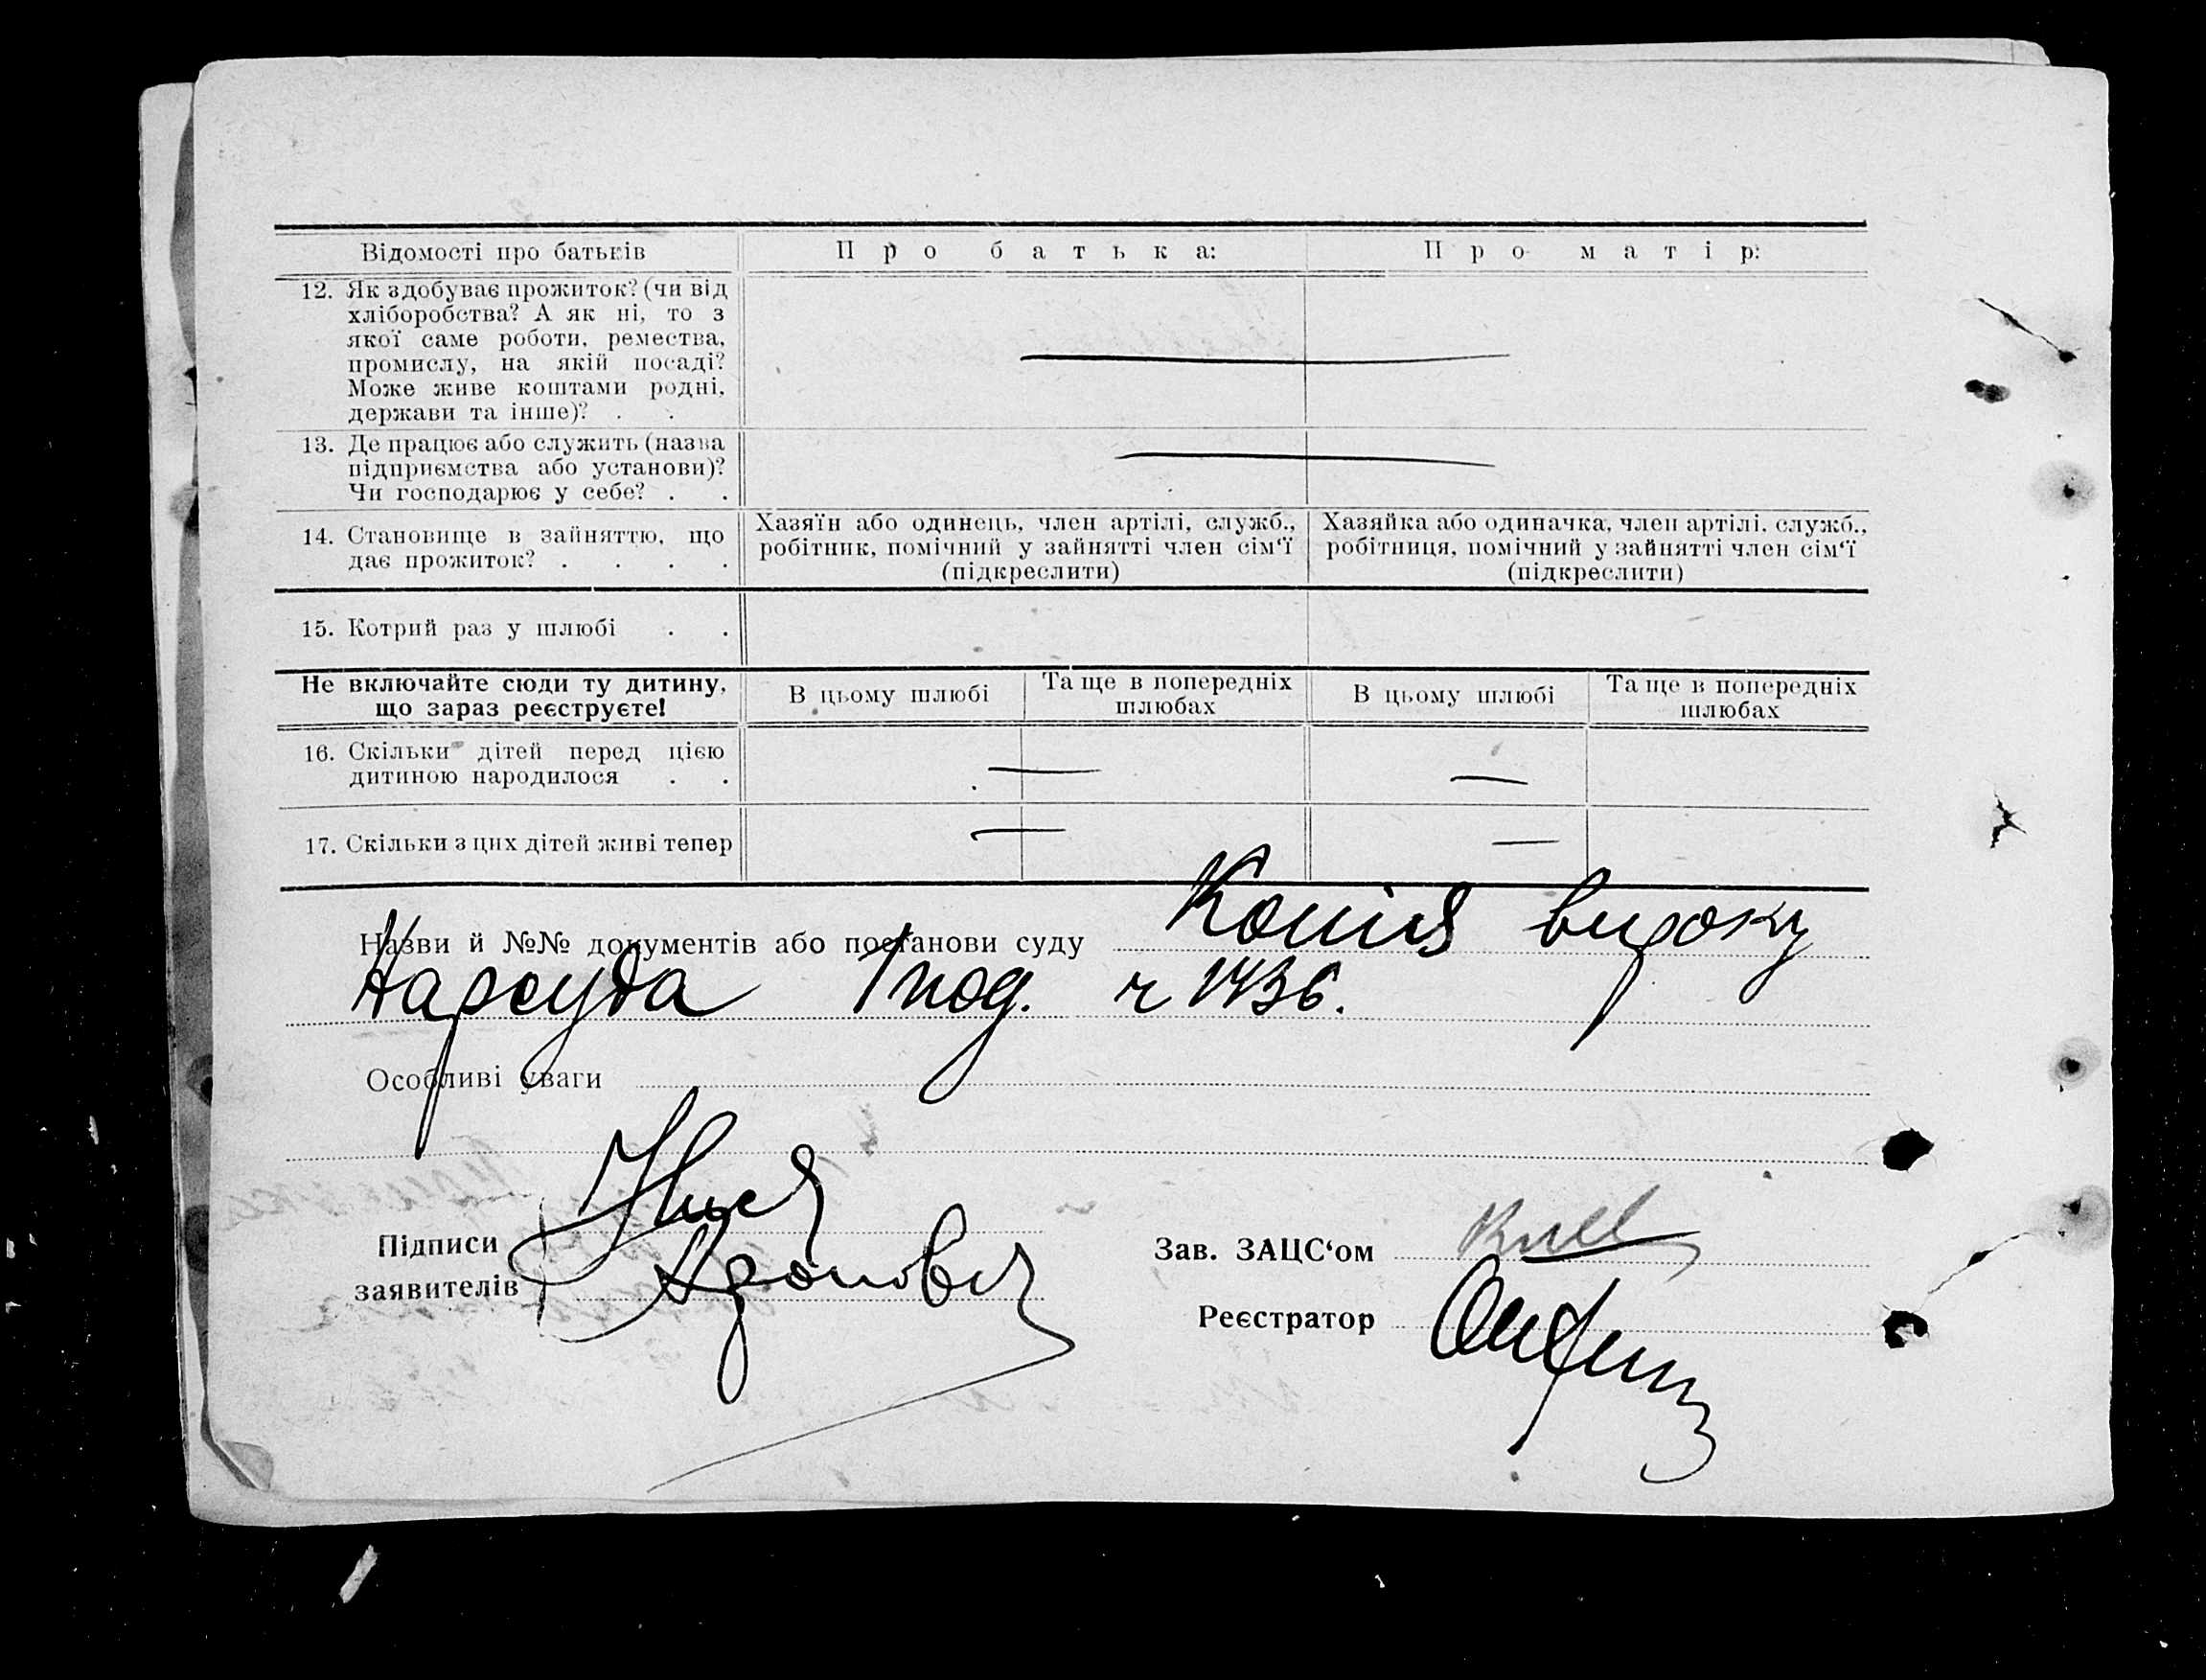 Відомості про батьків
Про батька:
Про матір:
12. Як здобуває прожиток? (чи від
хліборобства? А як ні, то з
якої саме роботи, ремества,
промислу, на якій посаді?
Може живе коштами родні,
держави та інше)? . .
13. Де працює або служить (назва
підприємства або установи)?
Чи господарює у себе? . .
14. Становище в зайняттю, що
дає прожиток? . . . .
Хазяїн або одинець, член артілі, служб.,
робітник, помічний у зайнятті член сім‘ї
(підкреслити)
Хазяйка або одиначка, член артілі, служб.,
робітниця, помічний у зайнятті член сім‘ї
(підкреслити)
15. Котрий раз у шлюбі . .
Не включайте сюди ту дитину,
що зараз реєструєте!
В цьому шлюбі
Та ще в попередніх
шлюбах
В цьому шлюбі
Та ще в попередніх
шлюбах
16. Скільки дітей перед цією
дитиною народилося . .
17. Скільки з цих дітей живі тепер
Назви й №№ документів або постанови суду Копія вироку
Нарсуда 1 под. ч 1436.
Особливі уваги
Підписи
заявителів
Зав. ЗАЦС‘ом
Реєстратор